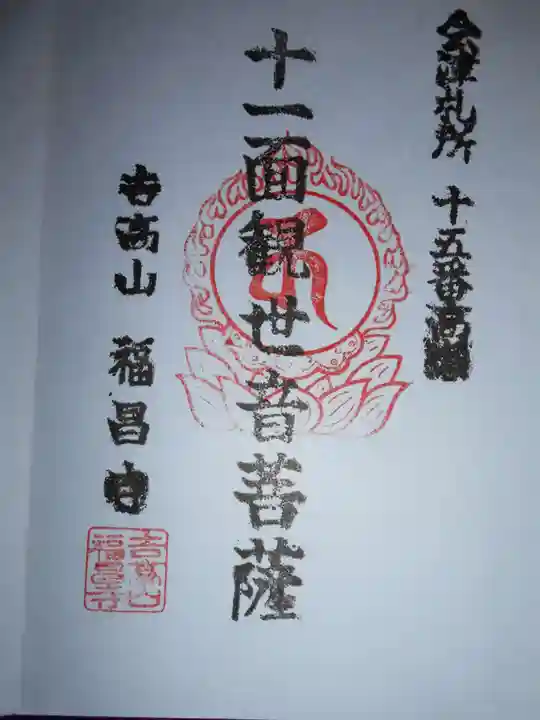 会津札所 十五番高
十一面観世音菩薩
吉高山 福昌
吉高山
福昌寺